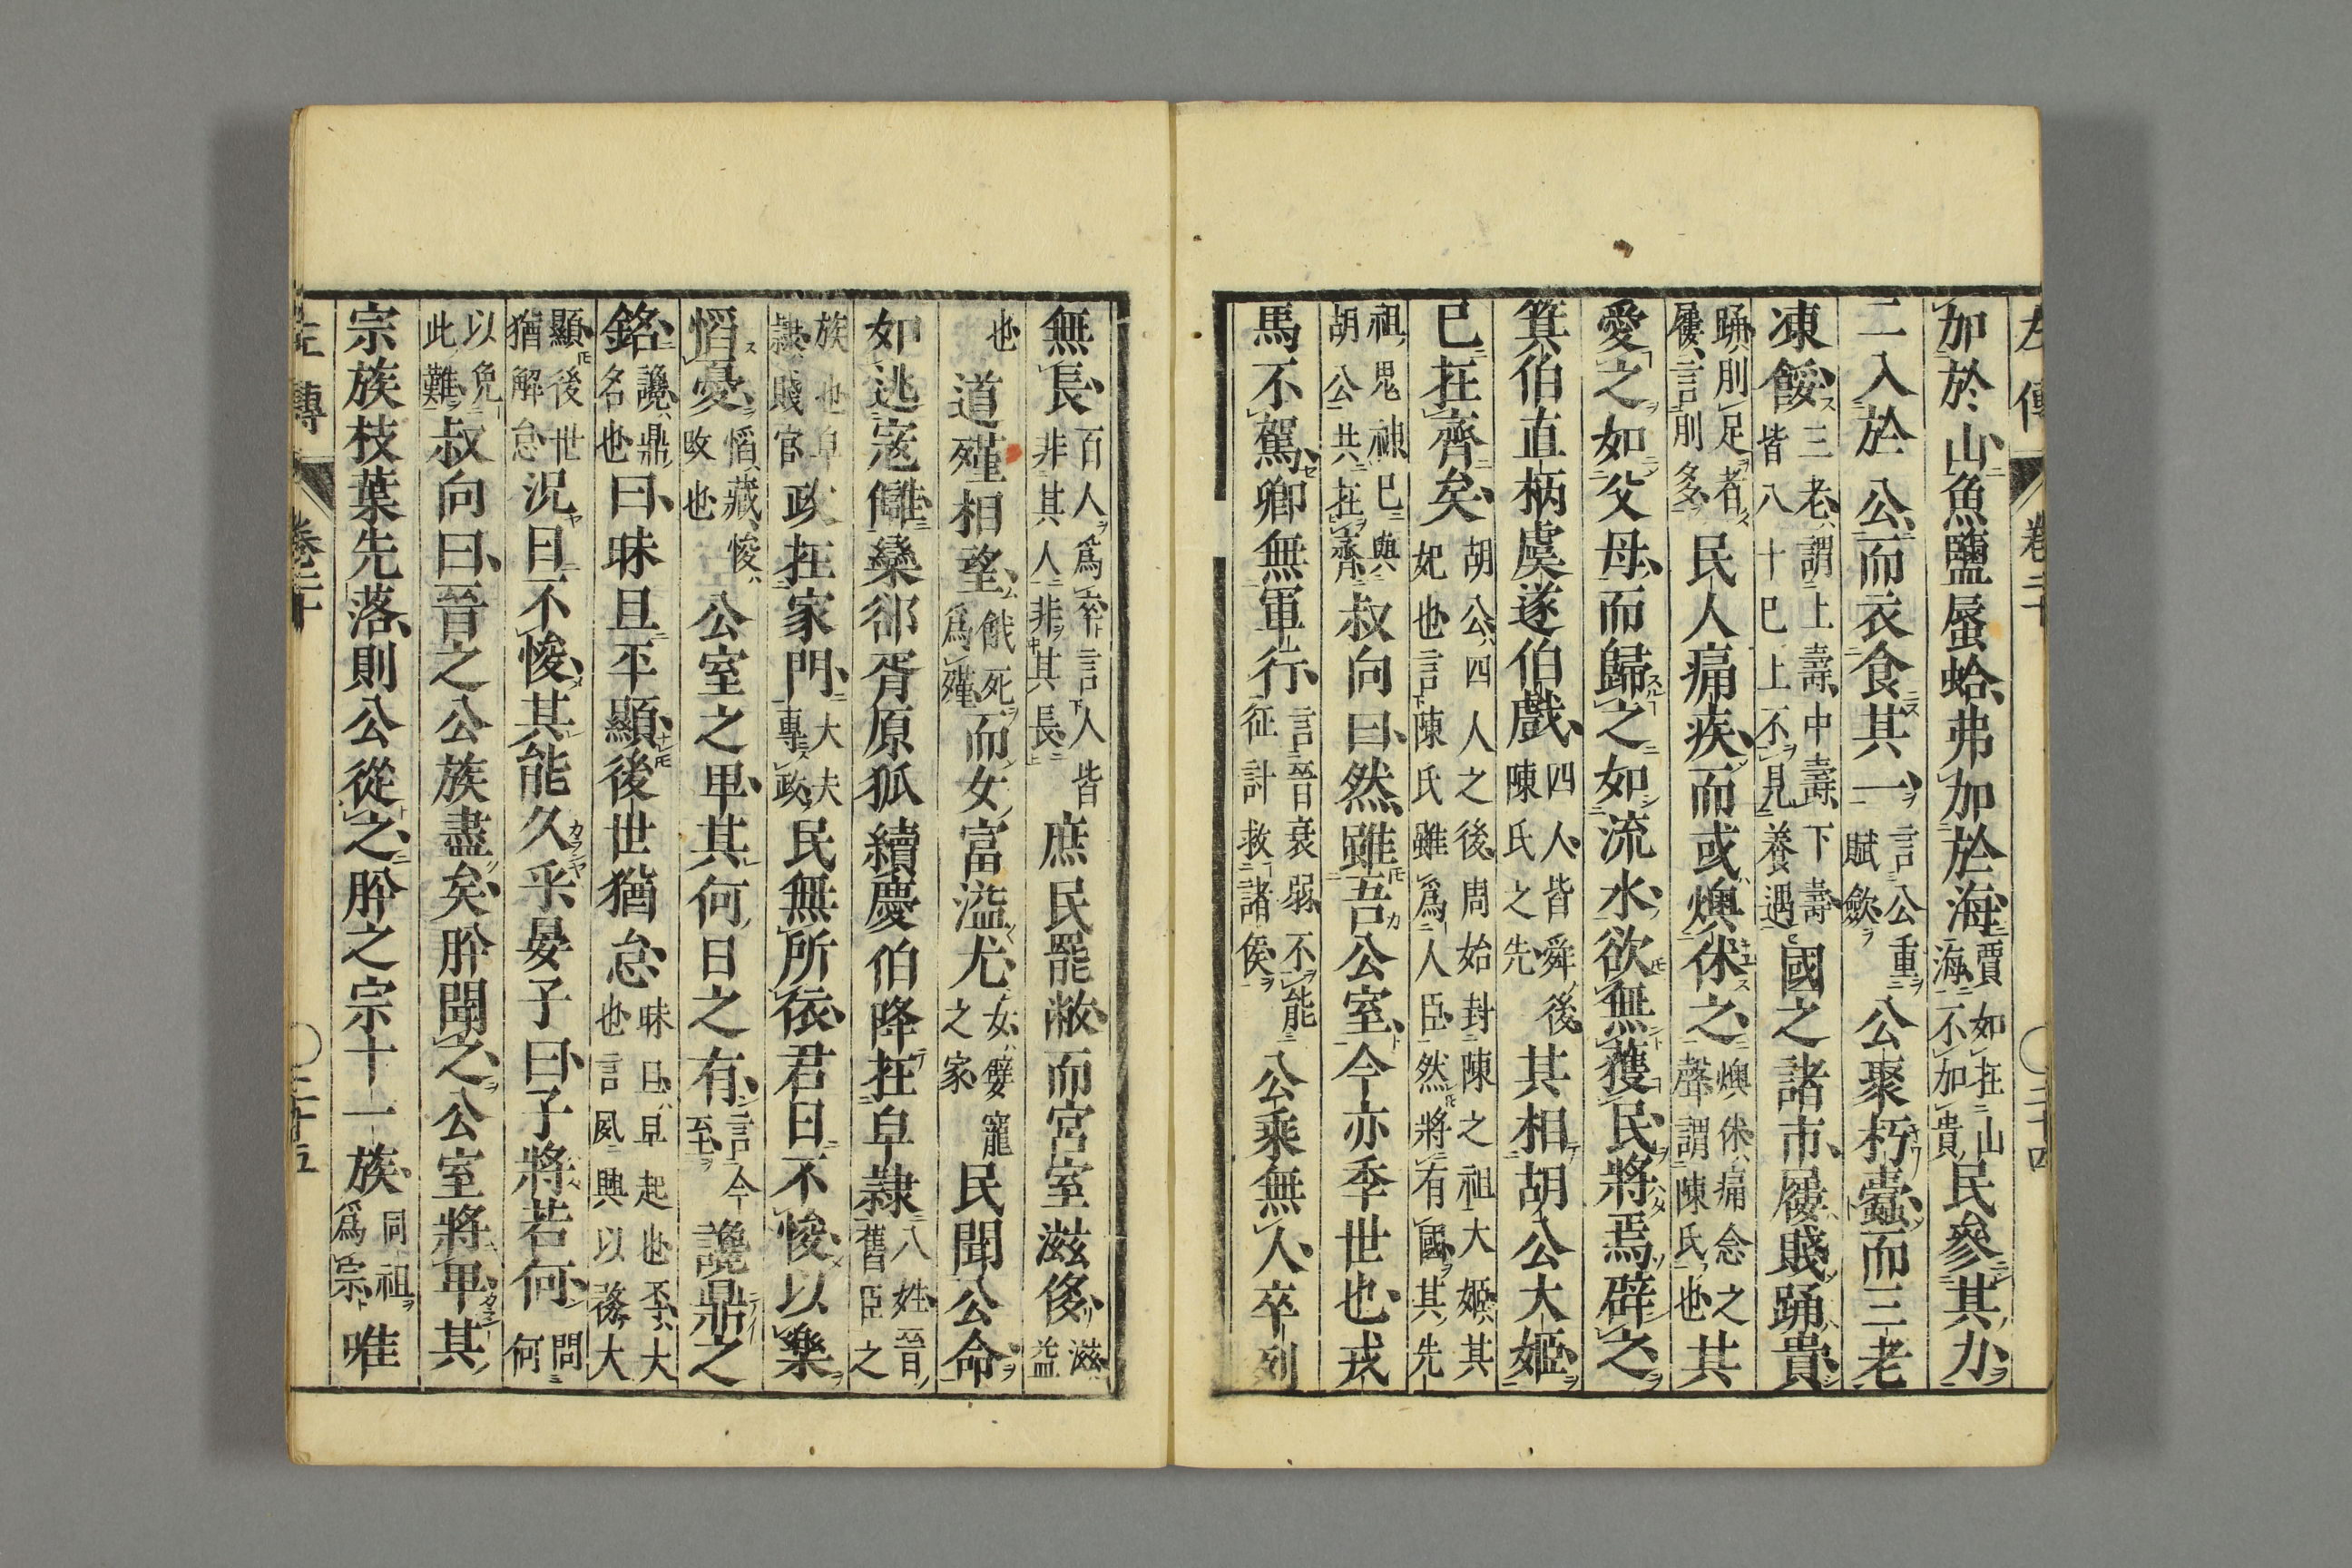 左傳 卷二十 〇三十四
加於山魚鹽蜃蛤弗加於海賈如在山海不加貴民參其力
二入於公而衣食其一言公重賦歛公聚朽蠹而三老
凍餒三老謂上壽中壽下壽皆八十已上不見養遇國之諸市屨賤踊貴
踊刖足者屨言刖多民人痛疾而或燠休之燠休痛念之聲謂陳氏也其
愛之如父母而歸之如流水欲無獲民將焉辟之
箕伯直柄虞遂伯戲四人皆舜後陳氏之先其相胡公大姬
已在齊矣胡公四人之後周始封陳之祖大姬其妃也言陳氏雖爲人臣然將有國其先
祖鬼神已與胡公共在齊叔向曰然雖吾公室今亦季世也戎
馬不駕卿無軍行言晉衰弱不能征討救諸侯公乘無人卒列
無長百人爲卒言人皆非其人非其長庶民罷敝而宮室滋侈滋益
也道殣相望餓死爲殣而女富溢尤女嬖寵之家民聞公命
如逃寇讎欒郤胥原狐續慶伯降在皁隷八姓晉舊臣之
族也皁隷賤官政在家門大夫專政民無所依君日不悛以樂
慆憂慆藏悛改也公室之卑其何日之有言今至讒鼎之
銘讒鼎名也曰昧旦丕顯後世猶怠昧旦早起也丕大也言夙興以務大
顯後世猶解怠況日不悛其能久乎晏子曰子將若何問何
以免此難叔向曰晉之公族盡矣肸聞之公室將卑其
宗族枝葉先落則公從之肸之宗十一族同祖爲宗唯
左傳 卷二十 〇三十五